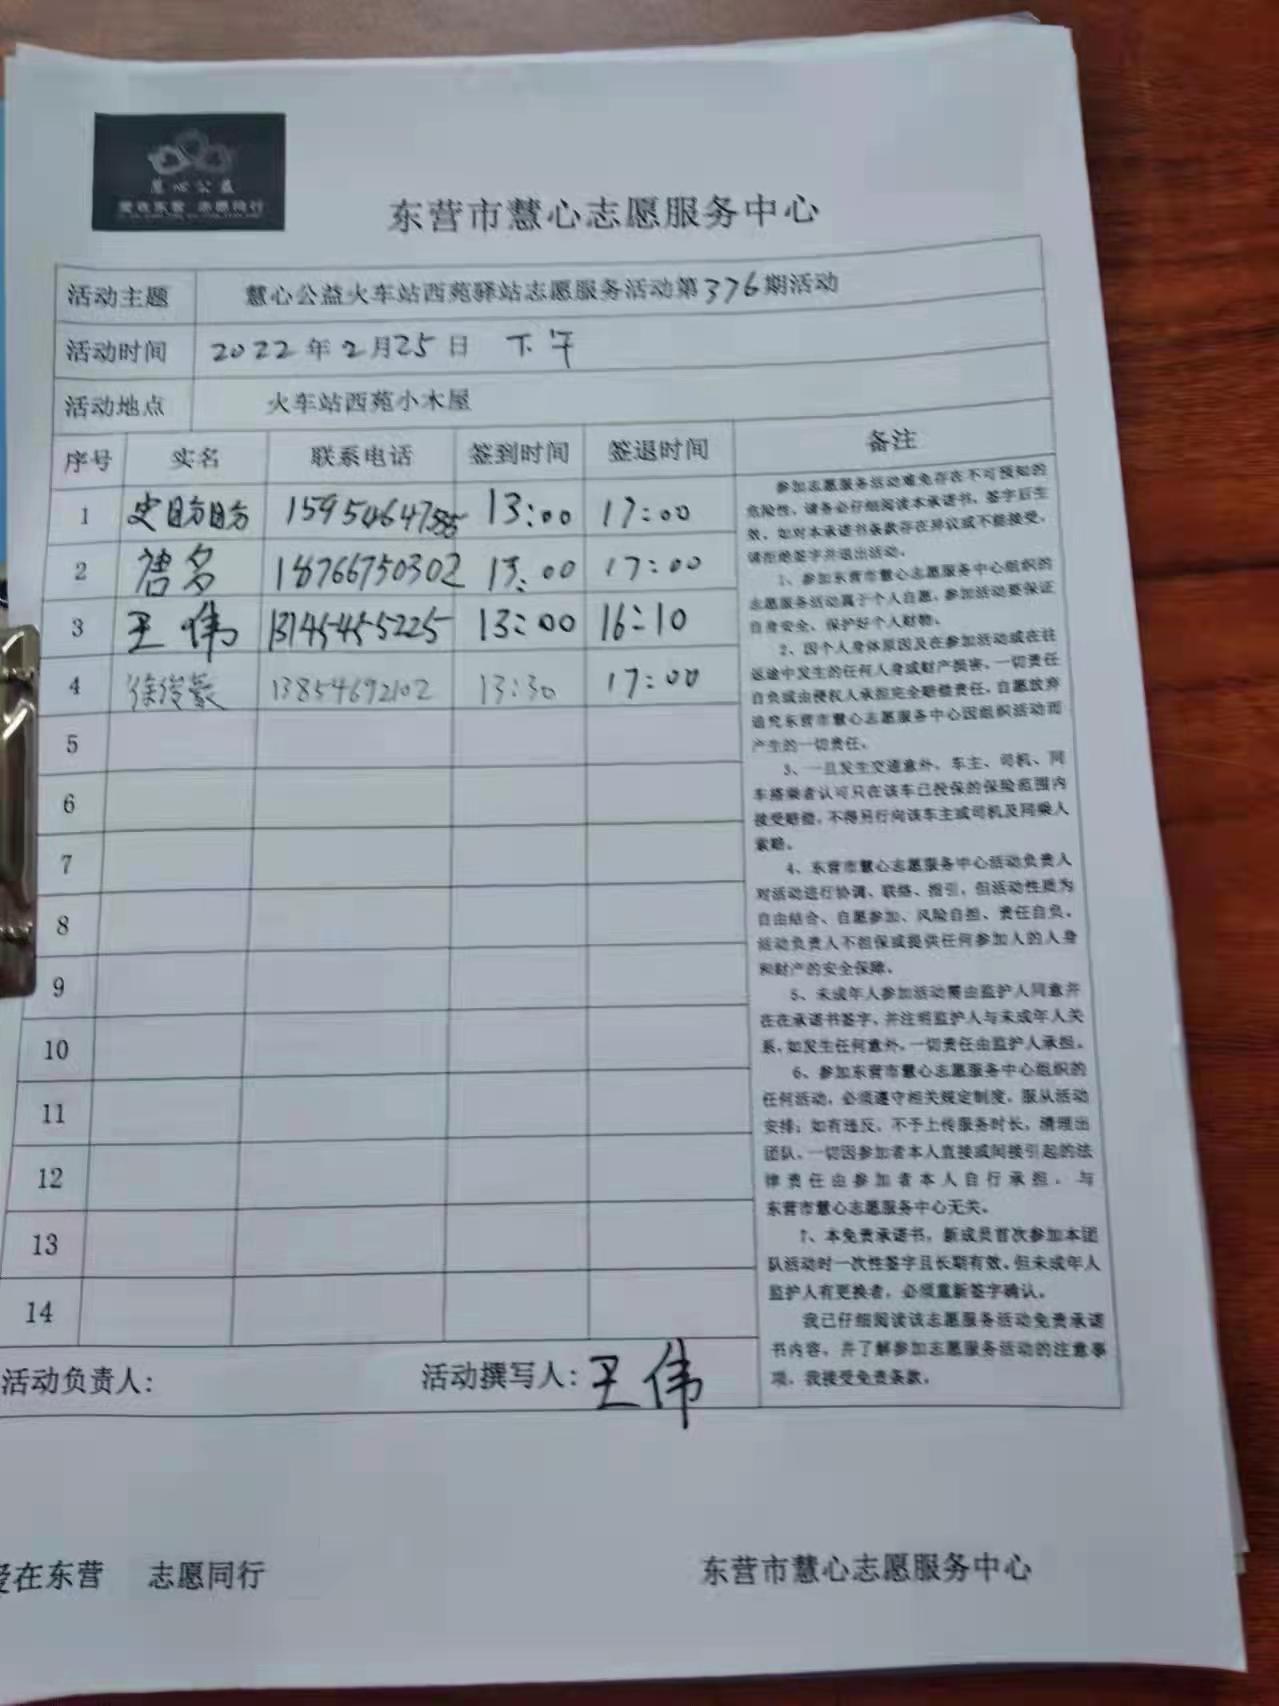 慧心公益
爱在东营 志愿同行
东营市慧心志愿服务中心
活动主题 慧心公益火车站西苑驿站志愿服务活动第376期活动
活动时间 2022年2月25日 下午
活动地点 火车站西苑小木屋
序号 实名 联系电话 签到时间 签退时间 备注
1 史盼盼 13:00 17:00
2 唐多 18766750302 13:00 17:00
3 王伟 13145455225 13:00 16:10
4 徐俊 13854692102 13:30 17:00
5
6
7
8
9
10
11
12
13
14
参加志愿服务活动难免存在不可预知的
危险性，请务必仔细阅读本承诺书，签字后生
效。如对本承诺书条款存在异议或不能接受，
请拒绝签字并退出活动。
1、参加东营市慧心志愿服务中心组织的
志愿服务活动属于个人自愿，参加活动要保证
自身安全、保护好个人财物。
2、因个人身体原因及在参加活动或在往
返途中发生的任何人身或财产损害，一切责任
自负或由侵权人承担完全赔偿责任，自愿放弃
追究东营市慧心志愿服务中心因组织活动而
产生的一切责任。
3、一旦发生交通意外，车主、司机、同
车搭乘者认可只在该车已投保的保险范围内
接受赔偿，不得另行向该车主或司机及同乘人
索赔。
4、东营市慧心志愿服务中心活动负责人
对活动进行协调、联络、指引，但活动性质为
自由结合、自愿参加、风险自担、责任自负。
活动负责人不担保或提供任何参加人的人身
和财产的安全保障。
5、未成年人参加活动需由监护人同意并
在在承诺书签字，并注明监护人与未成年人关
系，如发生任何意外，一切责任由监护人承担。
6、参加东营市慧心志愿服务中心组织的
任何活动，必须遵守相关规定制度，服从活动
安排；如有违反，不予上传服务时长，清理出
团队。一切因参加者本人直接或间接引起的法
律责任由参加者本人自行承担，与
东营市慧心志愿服务中心无关。
7、本免责承诺书，新成员首次参加本团
队活动时一次性签字且长期有效，但未成年人
监护人有更换者，必须重新签字确认。
我已仔细阅读该志愿服务活动免责承诺
书内容，并了解参加志愿服务活动的注意事
项，我接受免责条款。
活动负责人： 活动撰写人：王伟
爱在东营 志愿同行 东营市慧心志愿服务中心